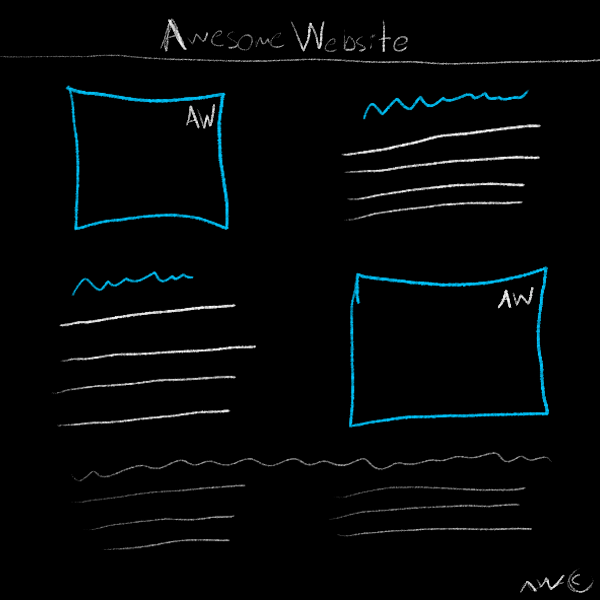 Awesome Website
AW
AW
AWC